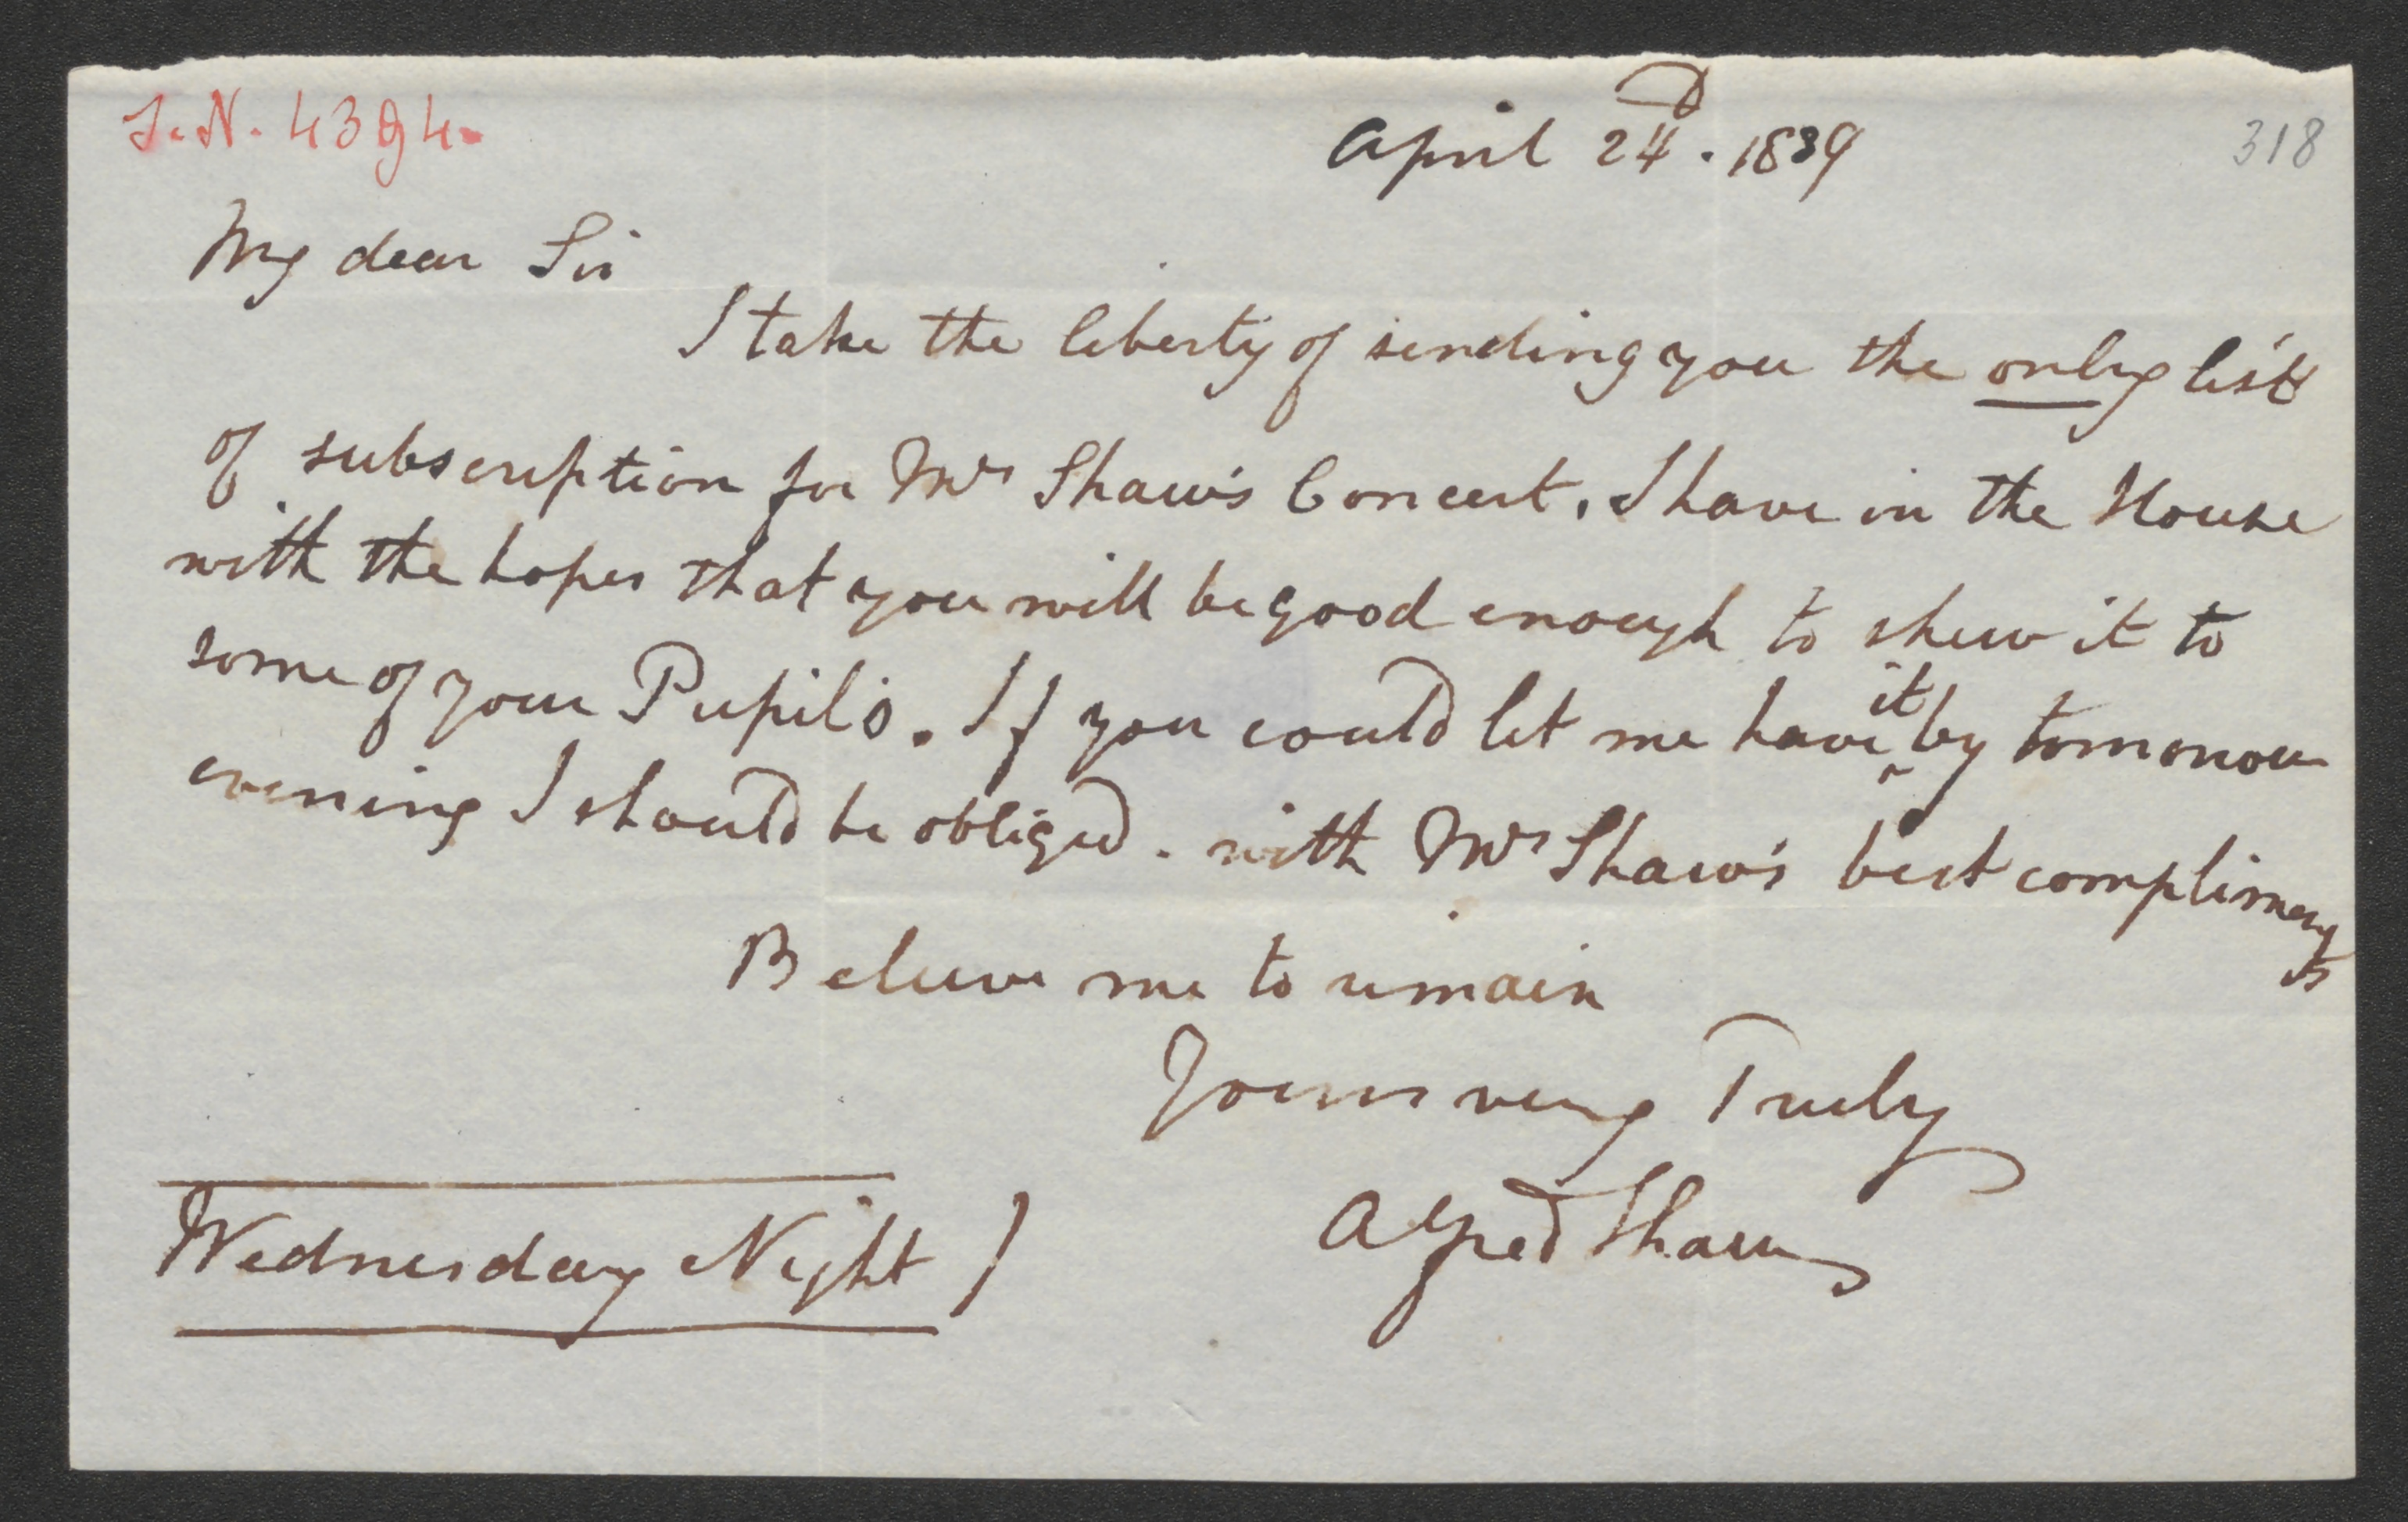 J. N. 4394.
April 24. 1839
318
My dear Sir
I take the liberty of sending you the only list
of subscription for Mrs Shaw's Concert, I have in the House
with the hopes that you will be good enough to shew it to
some of your Pupils. If you could let me have it by tomorrow
evening I should be obliged. with Mrs Shaw's best compliments
Believe me to remain
Yours very Truly
Alfred Shaw
Wednesday Night